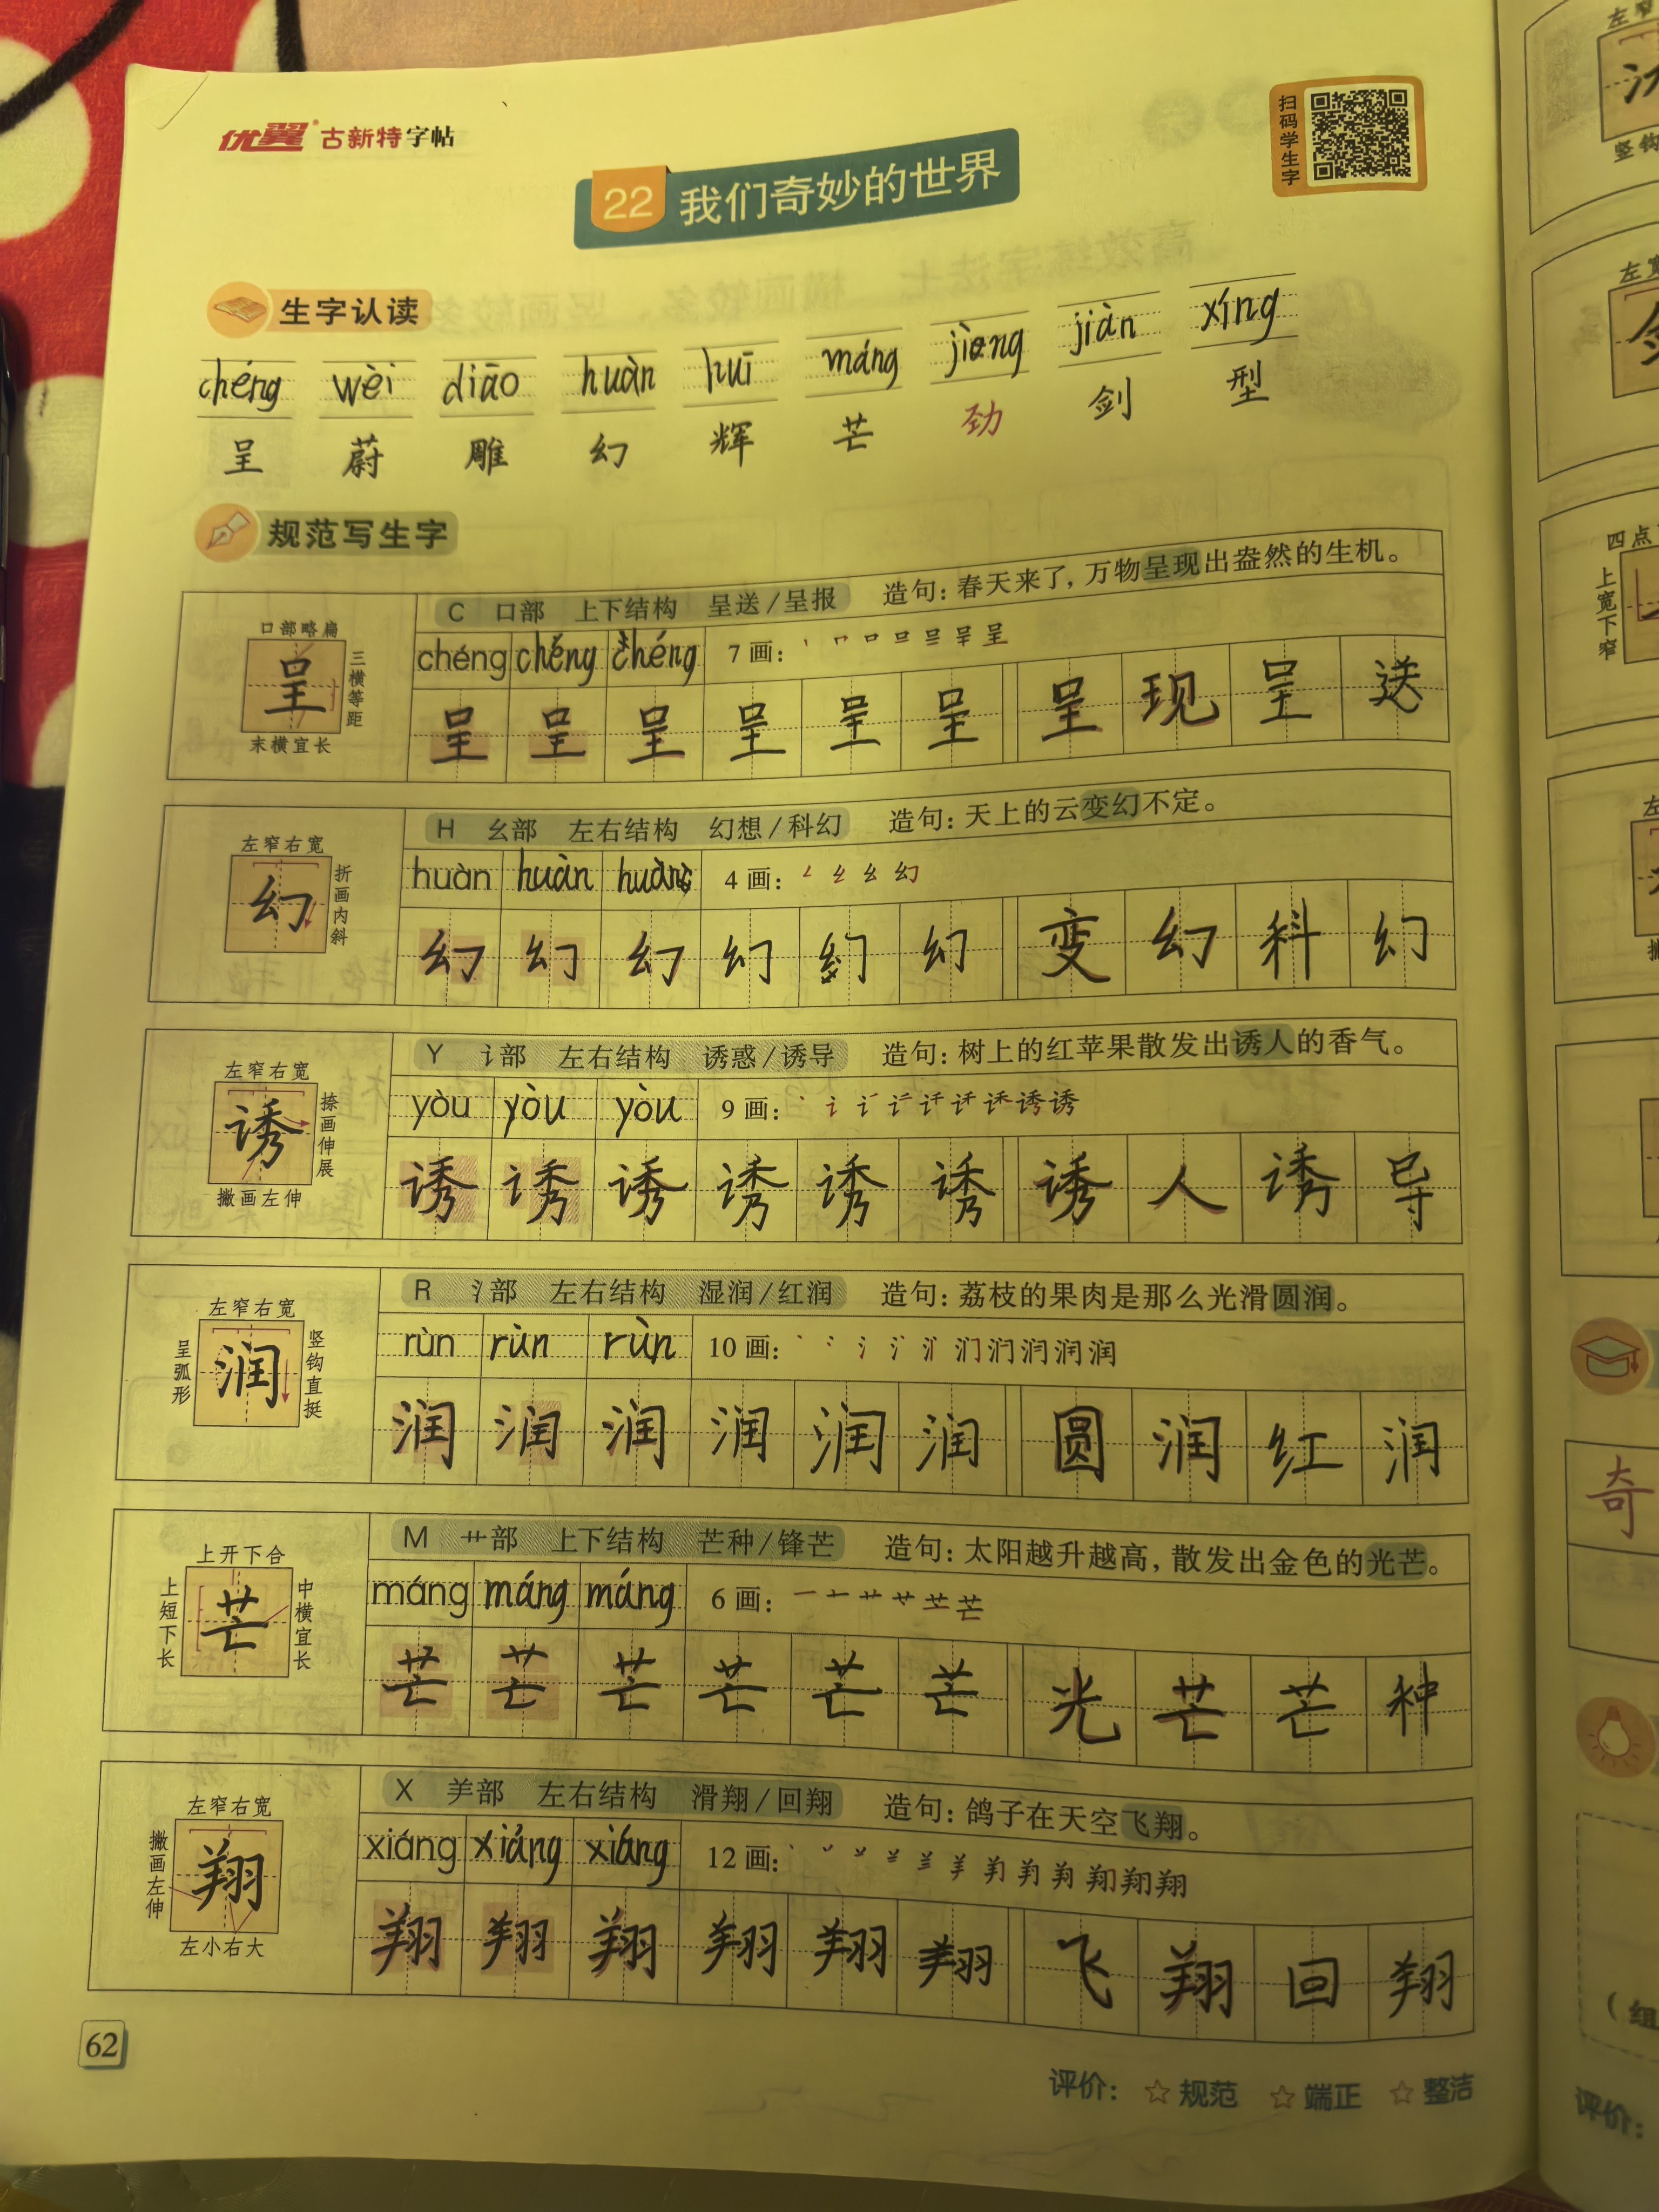 优翼 古新特字帖
22 我们奇妙的世界
扫码学生字
生字认读
chéng wèi diāo huàn huī máng jìng jiàn xíng
呈 蔚 雕 幻 辉 芒 劲 剑 型
规范写生字
C 口部 上下结构 呈送/呈报 造句：春天来了，万物呈现出盎然的生机。
口部略扁
三横等距
末横宜长
呈
chéng chéng chéng 7画：
呈 呈 呈 呈 呈 呈 呈 现 呈 送
H 幺部 左右结构 幻想/科幻 造句：天上的云变幻不定。
左窄右宽
折画内斜
幻
huàn huàn huàn 4画：
幻 幻 幻 幻 幻 幻 变 幻 科 幻
Y 讠部 左右结构 诱惑/诱导 造句：树上的红苹果散发出诱人的香气。
左窄右宽
捺画伸展
撇画左伸
诱
yòu yòu yòu 9画：
诱 诱 诱 诱 诱 诱 诱 人 诱 导
R 氵部 左右结构 湿润/红润 造句：荔枝的果肉是那么光滑圆润。
左窄右宽
呈弧形
竖钩直挺
润
rùn rùn rùn 10画：
润 润 润 润 润 润 圆 润 红 润
M 艹部 上下结构 芒种/锋芒 造句：太阳越升越高，散发出金色的光芒。
上开下合
上短下长
中横宜长
芒
máng máng máng 6画：
芒 芒 芒 芒 芒 芒 光 芒 芒 种
X 羊部 左右结构 滑翔/回翔 造句：鸽子在天空飞翔。
左窄右宽
撇画左伸
左小右大
翔
xiáng xiáng xiáng 12画：
翔 翔 翔 翔 翔 翔 飞 翔 回 翔
62
评价： ☆ 规范 ☆ 端正 ☆ 整洁
竖钩
四点
上宽下窄
奇
（组
评价：